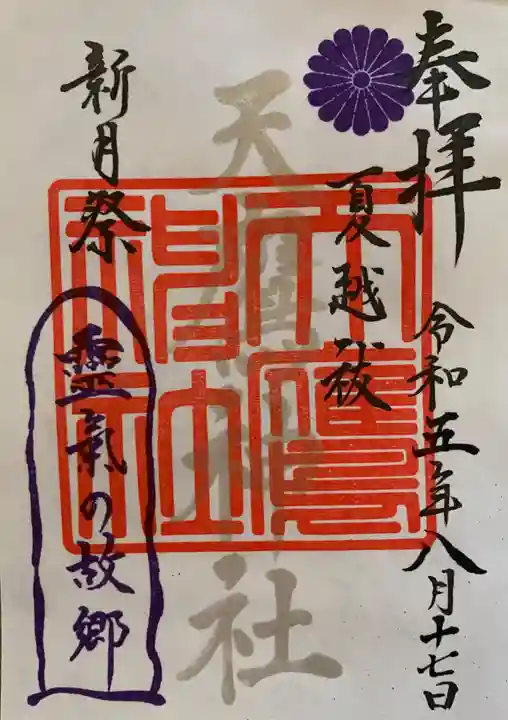 奉拝
令和五年八月十七日
夏越祓
天鷹神社
天鷹神社
新月祭
靈氣の故郷